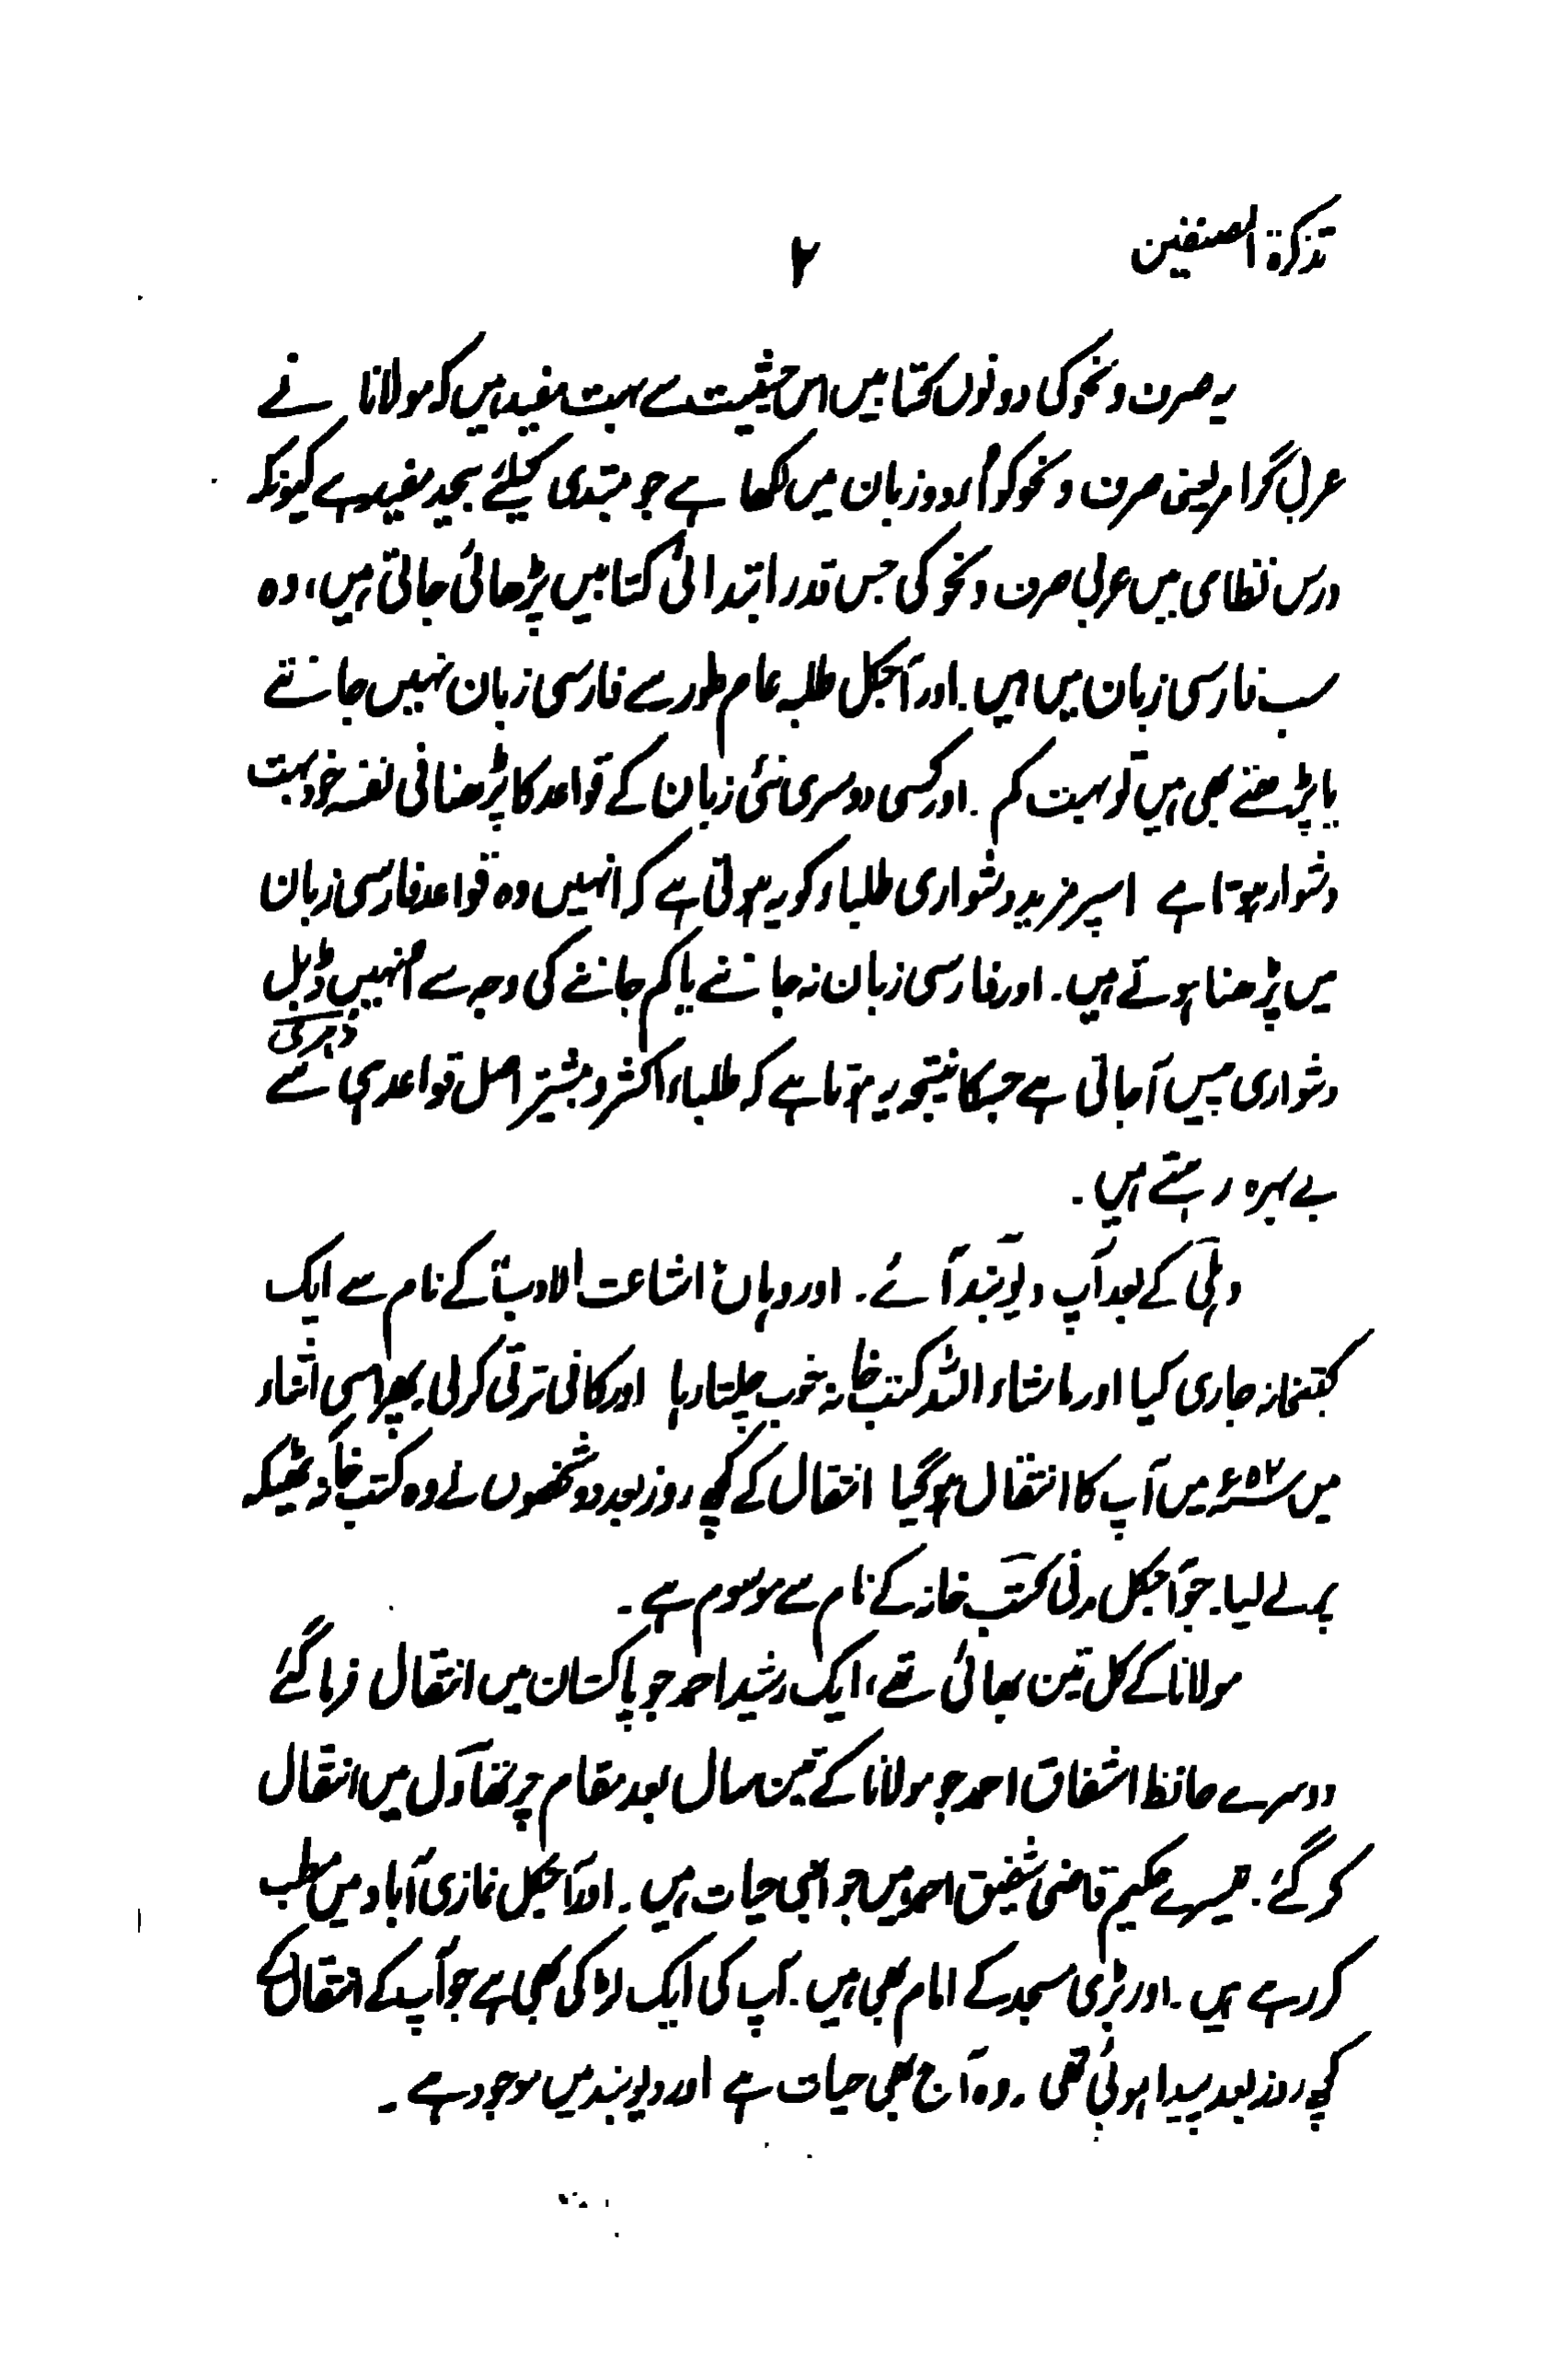 تذکرۃ المصنفین
۲
یہ صرف و نحو کی دونوں کتابیں اس حیثیت سے بہت مفید ہیں کہ مولانا نے
عربی گرامر یعنی صرف و نحو کو اُردو زبان میں لکھا ہے جو مبتدی کیلئے بیحد مفید ہے کیونکہ
درس نظامی میں عربی صرف و نحو کی جس قدر ابتدائی کتابیں پڑھائی جاتی ہیں، وہ
سب فارسی زبان میں ہیں. اور آجکل طلبہ عام طور سے فارسی زبان نہیں جانتے
یا پڑھتے بھی ہیں تو بہت کم. اور کسی دوسری نئی زبان کے قواعد کا پڑھنا فی نفسہ خود بہت
دشوار ہوتا ہے اسپر مزید دشواری طلباء کو یہ ہوتی ہے کہ انہیں وہ قواعد فارسی زبان
میں پڑھنا ہوتے ہیں. اور فارسی زبان نہ جاننے یا کم جاننے کی وجہ سے اُنہیں ڈبل
دہری
دشواری پیس آجاتی ہے جسکا نتیجہ یہ ہوتا ہے کہ طلباء اکثر و بیشتر اصل قواعد ہی سے
بے بہرہ رہتے ہیں.
دہلی کے بعد آپ دیوبند آئے. اور وہاں اشاعت الادب کے نام سے ایک
کتبخانہ جاری کیا اور ماشاء اللہ کتب خانہ خوب چلتا رہا اور کافی ترقی کر لی. پھر اسی اثناء
میں ۵۲ء میں آپ کا انتقال ہوگیا انتقال کے کچھ روز بعد دو شخصوں نے وہ کتب خانہ ٹھیکہ
پر لے لیا. جو آجکل مدنی کتب خانہ کے نام سے موسوم ہے.
مولانا کے کل تین بھائی تھے، ایک رشید احمد جو پاکستان میں انتقال فرما گئے
دوسرے حافظ اشفاق احمد جو مولانا کے تین سال بعد مقام چرتھاول میں انتقال
کر گئے. تیسرے حکیم قاضی شفیق احمد ہیں جو ابھی حیات ہیں. اور آجکل غازی آباد میں مطب
کر رہے ہیں. اور بڑی مسجد کے امام بھی ہیں. آپ کی ایک لڑکی بھی ہے جو آپ کے انتقال کے
کچھ روز بعد پیدا ہوئی تھی. وہ آج بھی حیات ہے اور دیوبند میں موجود ہے۔